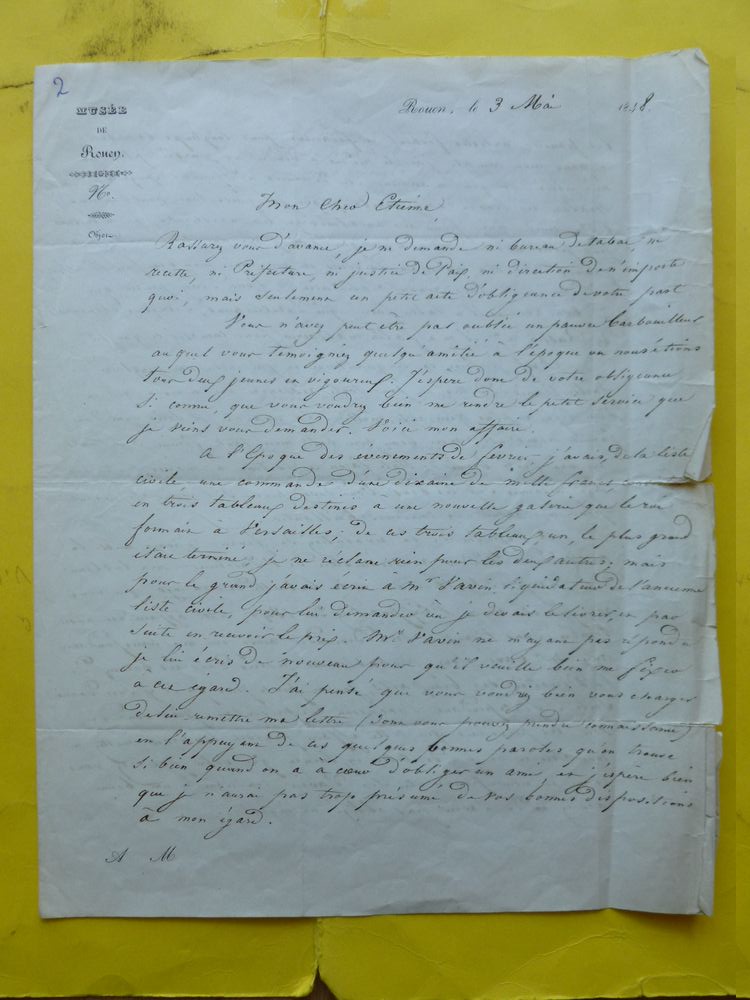 2
MUSÉE
DE
Rouen.
No.
Objet
Rouen, le 3 Mai 1848.
Mon cher Etienne,
Rassurez vous d'avance, je ne demande ni bureau de tabac, ni
recette, ni Préfecture, ni justice de Paix, ni direction de n'importe
quoi, mais seulement un petit acte d'obligeance de votre part
Vous n'avez peut être pas oublié un pauvre barbouilleur
auquel vous temoigniez quelqu'amitié à l'époque ou nous étions
tous deux jeunes en vigoureux. J'espère donc de votre obligeance
si connue, que vous voudrez bien me rendre le petit service que
je viens vous demander. Voici mon affaire.
A l'Epoque des évenements de fevrier j'avais, de la liste
civile, une commande d'une dixaine de mille francs
en trois tableaux destinés à une nouvelle galerie que le roi
formait à Versailles; de ces trois tableaux un, le plus grand
étant terminé, je ne réclame rien pour les deux autres; mais
pour le grand j'avais écrit à Mr. Vavin liquidateur de l'ancienne
liste civile, pour lui demander où je devais le livrer, et par
suite en recevoir le prix. Mr. Vavin ne m'ayant pas répondu
je lui écris de nouveau pour qu'il veuille bien me fixer
à cet égard. J'ai pensé que vous voudriez bien vous charger
de lui remettre ma lettre (dont vous pouvez prendre connaissance)
en l'appuyant de ces quelques bonnes paroles qu'on trouve
si bien quand on a à cœur d'obliger un ami, et j'espère bien
que je n'aurai pas trop présumé de vos bonnes dispositions
à mon égard.
A M